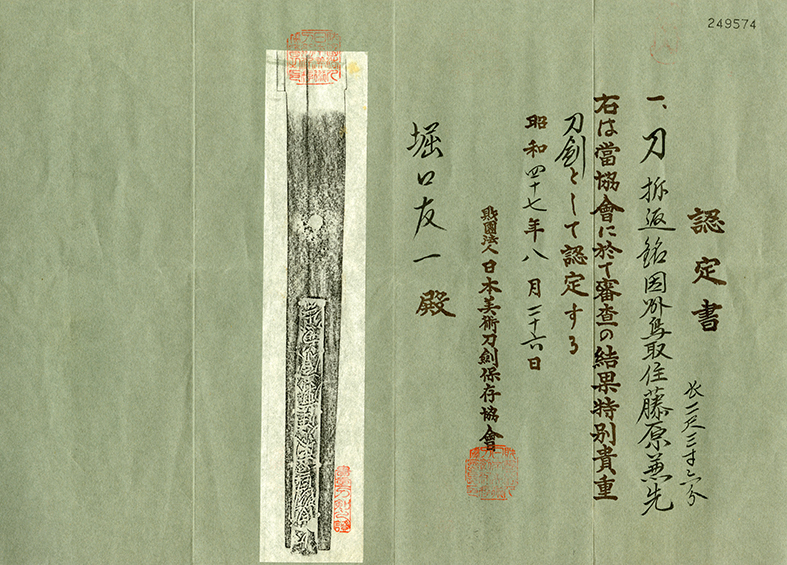 249574
認定書
一、刀 折返銘因州鳥取住藤原兼先
長二尺三寸六分
右は當協會に於て審査の結果特別貴重
刀劍として認定する
昭和四十七年八月二十六日
財團法人日本美術刀劍保存協會
堀口友一殿